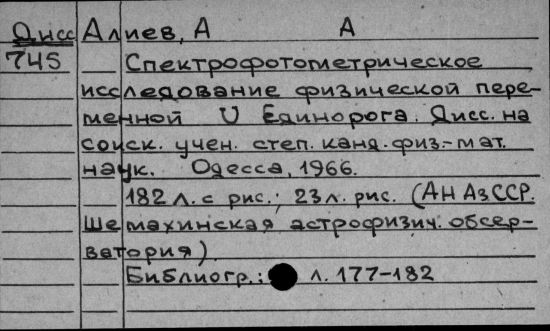 Дисс Алиев, А А
745 Спектрофотометрическое
исследование физической пере-
менной U Единорога. Дисс. на
соиск. учен. степ. канд. физ.-мат.
наук. Одесса, 1966.
182 л. с рис.; 23 л. рис. (АН АзССР.
Шемахинская астрофизич. обсер-
ватория).
Библиогр.: л. 177-182